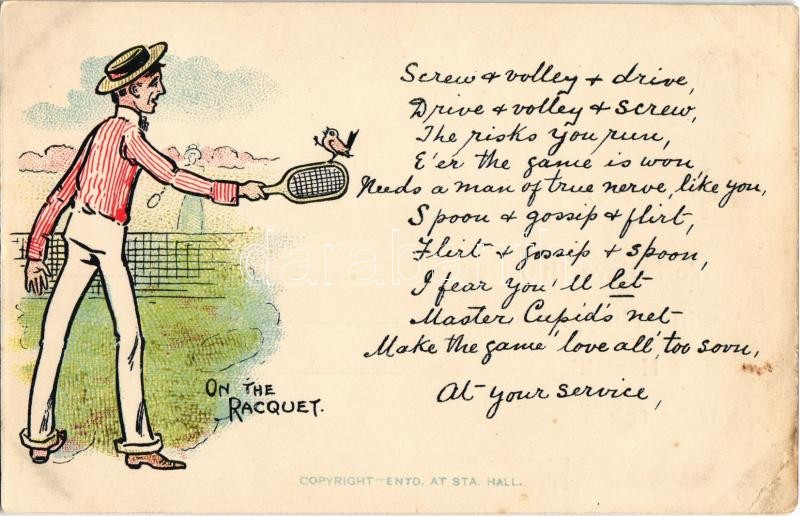 Screw & volley & drive,
Drive & volley & screw,
The risks you run,
E'er the game is won
Needs a man of true nerve, like you,
Spoon & gossip & flirt,
Flirt & gossip & spoon,
I fear you'll let
Master Cupid's net
Make the game 'love all,' too soon,
At your service,
ON THE
RACQUET.
COPYRIGHT—ENTD. AT STA. HALL.